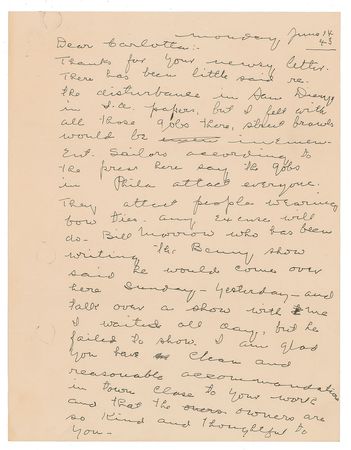 monday, June 14
43
Dear Carlotta:-
Thanks for your newsy letter.
There has been little said re-
the disturbance in San Diego
in L.A. papers, but I felt with
all those gobs there, street brawls
would be
ent. Sailors according to
the press here say the gobs
in Phila attack everyone.
They attack people wearing
bow ties. any excuse will
do- Bill Morrow who has been
writing the Benny show
said he would come over
here Sunday - Yesterday - and
talk over a show with me
I waited all day, but he
failed to show. I am glad
you have clean and
reasonable accommodations
in town close to your work
and that the owners are
so kind and thoughtful to
you-